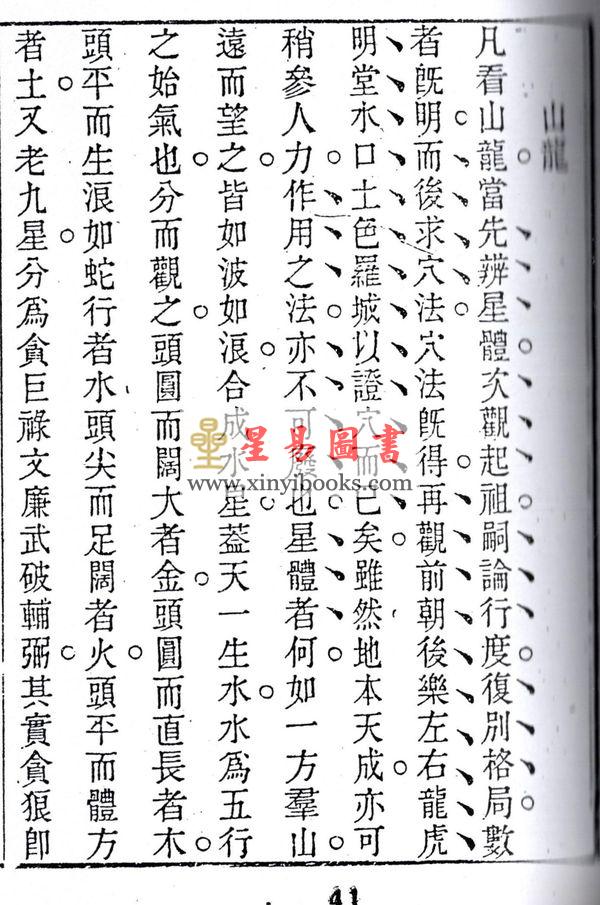 山龍
凡看山龍當先辨星體次觀起祖嗣論行度復別格局數
者旣明而後求穴法穴法旣得再觀前朝後樂左右龍虎
明堂水口土色羅城以證穴而已矣雖然地本天成亦可
稍參人力作用之法亦不可廢也星體者何如一方羣山
遠而望之皆如波如浪合成水星葢天一生水水爲五行
之始氣也分而觀之頭圓而闊大者金頭圓而直長者木
頭平而生浪如蛇行者水頭尖而足闊者火頭平而體方
者土又老九星分爲貪巨祿文廉武破輔弼其實貪狼卽
星易圖書
www.xinyibooks.com
41